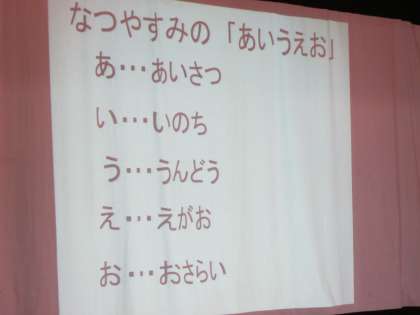 なつやすみの「あいうえお」
あ・・・あいさつ
い・・・いのち
う・・・うんどう
え・・・えがお
お・・・おさらい